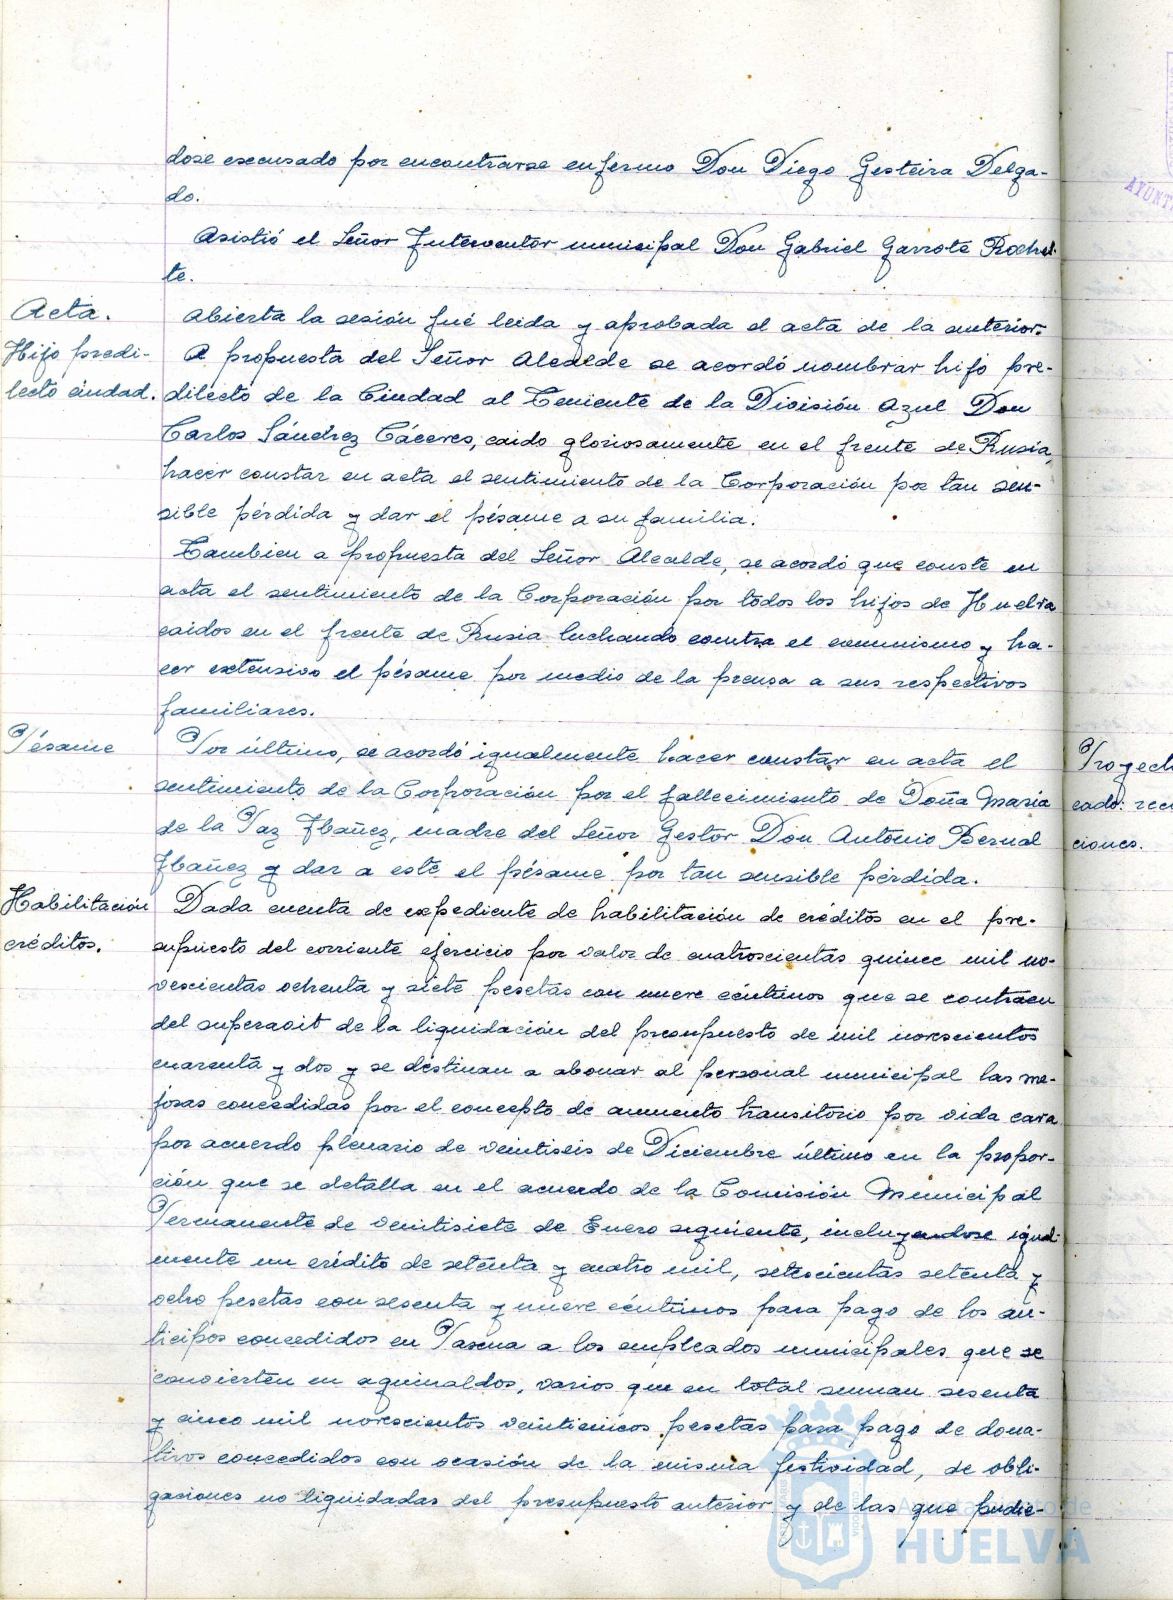 dose excusado por encontrarse enfermo Don Diego Gesteira Delga-
do.
Asistió el Señor Interventor municipal Don Gabriel Garrote Rochel-
te.
Acta.
Abierta la sesión fué leida y aprobada el acta de la anterior.
Hijo predi-
lecto ciudad.
A propuesta del Señor Alcalde se acordó nombrar hijo pre-
dilecto de la Ciudad al Teniente de la División Azul Don
Carlos Sánchez Cáceres, caido gloriosamente en el frente de Rusia,
hacer constar en acta el sentimiento de la Corporación por tan sen-
sible pérdida y dar el pésame a su familia.
Tambien a propuesta del Señor Alcalde, se acordó que conste en
acta el sentimiento de la Corporación por todos los hijos de Huelva
caidos en el frente de Rusia luchando contra el comunismo y ha-
cer extensivo el pésame por medio de la prensa a sus respectivos
familiares.
Pésame
Por último, se acordó igualmente hacer constar en acta el
sentimiento de la Corporación por el fallecimiento de Doña Maria
de la Paz Ibañez, madre del Señor Gestor Don Antonio Bernal
Ibañez y dar a este el pésame por tan sensible pérdida.
Habilitación
créditos.
Dada cuenta de expediente de habilitación de créditos en el pre-
supuesto del corriente ejercicio por valor de cuatroscientas quince mil no-
vescientas ochenta y siete pesetas con nueve céntimos que se contraen
del superavit de la liquidación del presupuesto de mil novescientos
cuarenta y dos y se destinan a abonar al personal municipal las me-
joras concedidas por el concepto de aumento transitorio por vida cara
por acuerdo plenario de veintiseis de Diciembre último en la propor-
ción que se detalla en el acuerdo de la Comisión Municipal
Permanente de veintisiete de Enero siguiente, incluyendose igual-
mente un crédito de setenta y cuatro mil, setescientas setenta y
ocho pesetas con sesenta y nueve céntimos para pago de los an-
ticipos concedidos en Pascua a los empleados municipales que se
convierten en aguinaldos, varios que en total suman sesenta
y cinco mil novescientos veinticinco pesetas para pago de dona-
tivos concedidos con ocasión de la misma festividad, de obli-
gaciones no liquidadas del presupuesto anterior y de las que pudie-
Ayuntamiento de
HUELVA